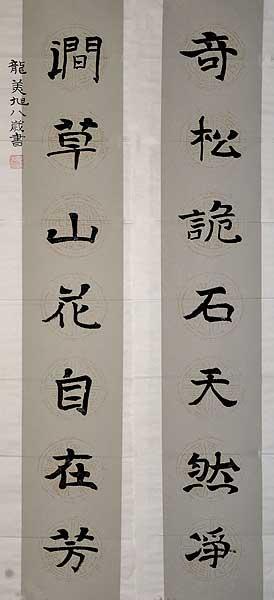 奇松詭石天然淨
澗草山花自在芳
龍美旭八歲書